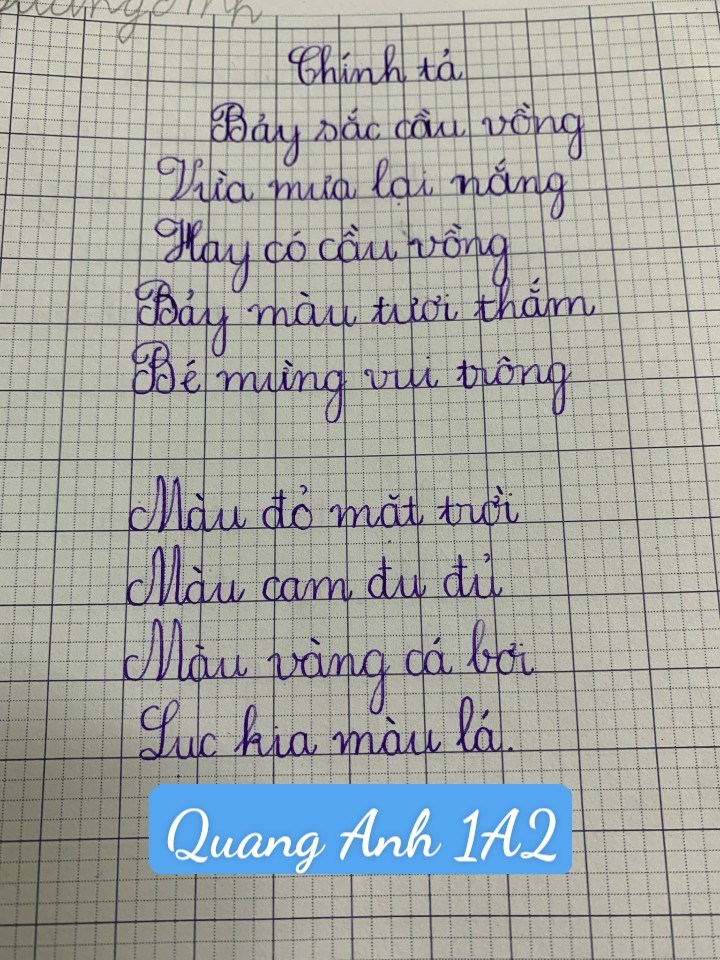 Chính tả
Bảy sắc cầu vồng
Vừa mưa lại nắng
Hay có cầu vồng
Bảy màu tươi thắm
Bé mừng vui trông
Màu đỏ mặt trời
Màu cam đu đủ
Màu vàng cá bơi
Lục kia màu lá.
Quang Anh 1A2